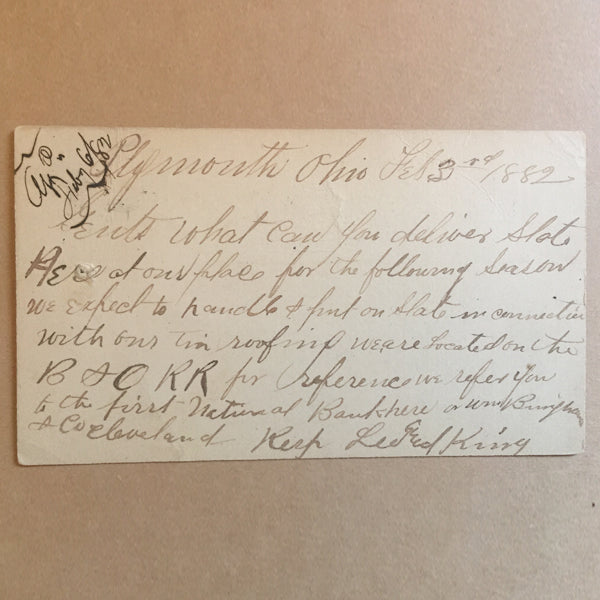 Feby 6/82
Plymouth Ohio Feb 3rd 1882
Gents What can you deliver Slate
Here at our place for the following Season
we expect to handle & put on Slate in connection
with our tin roofing we are Located on the
B & O RR for reference we refer you
to the first National Bank here or Wm Bingham
& Co Cleveland Resp King